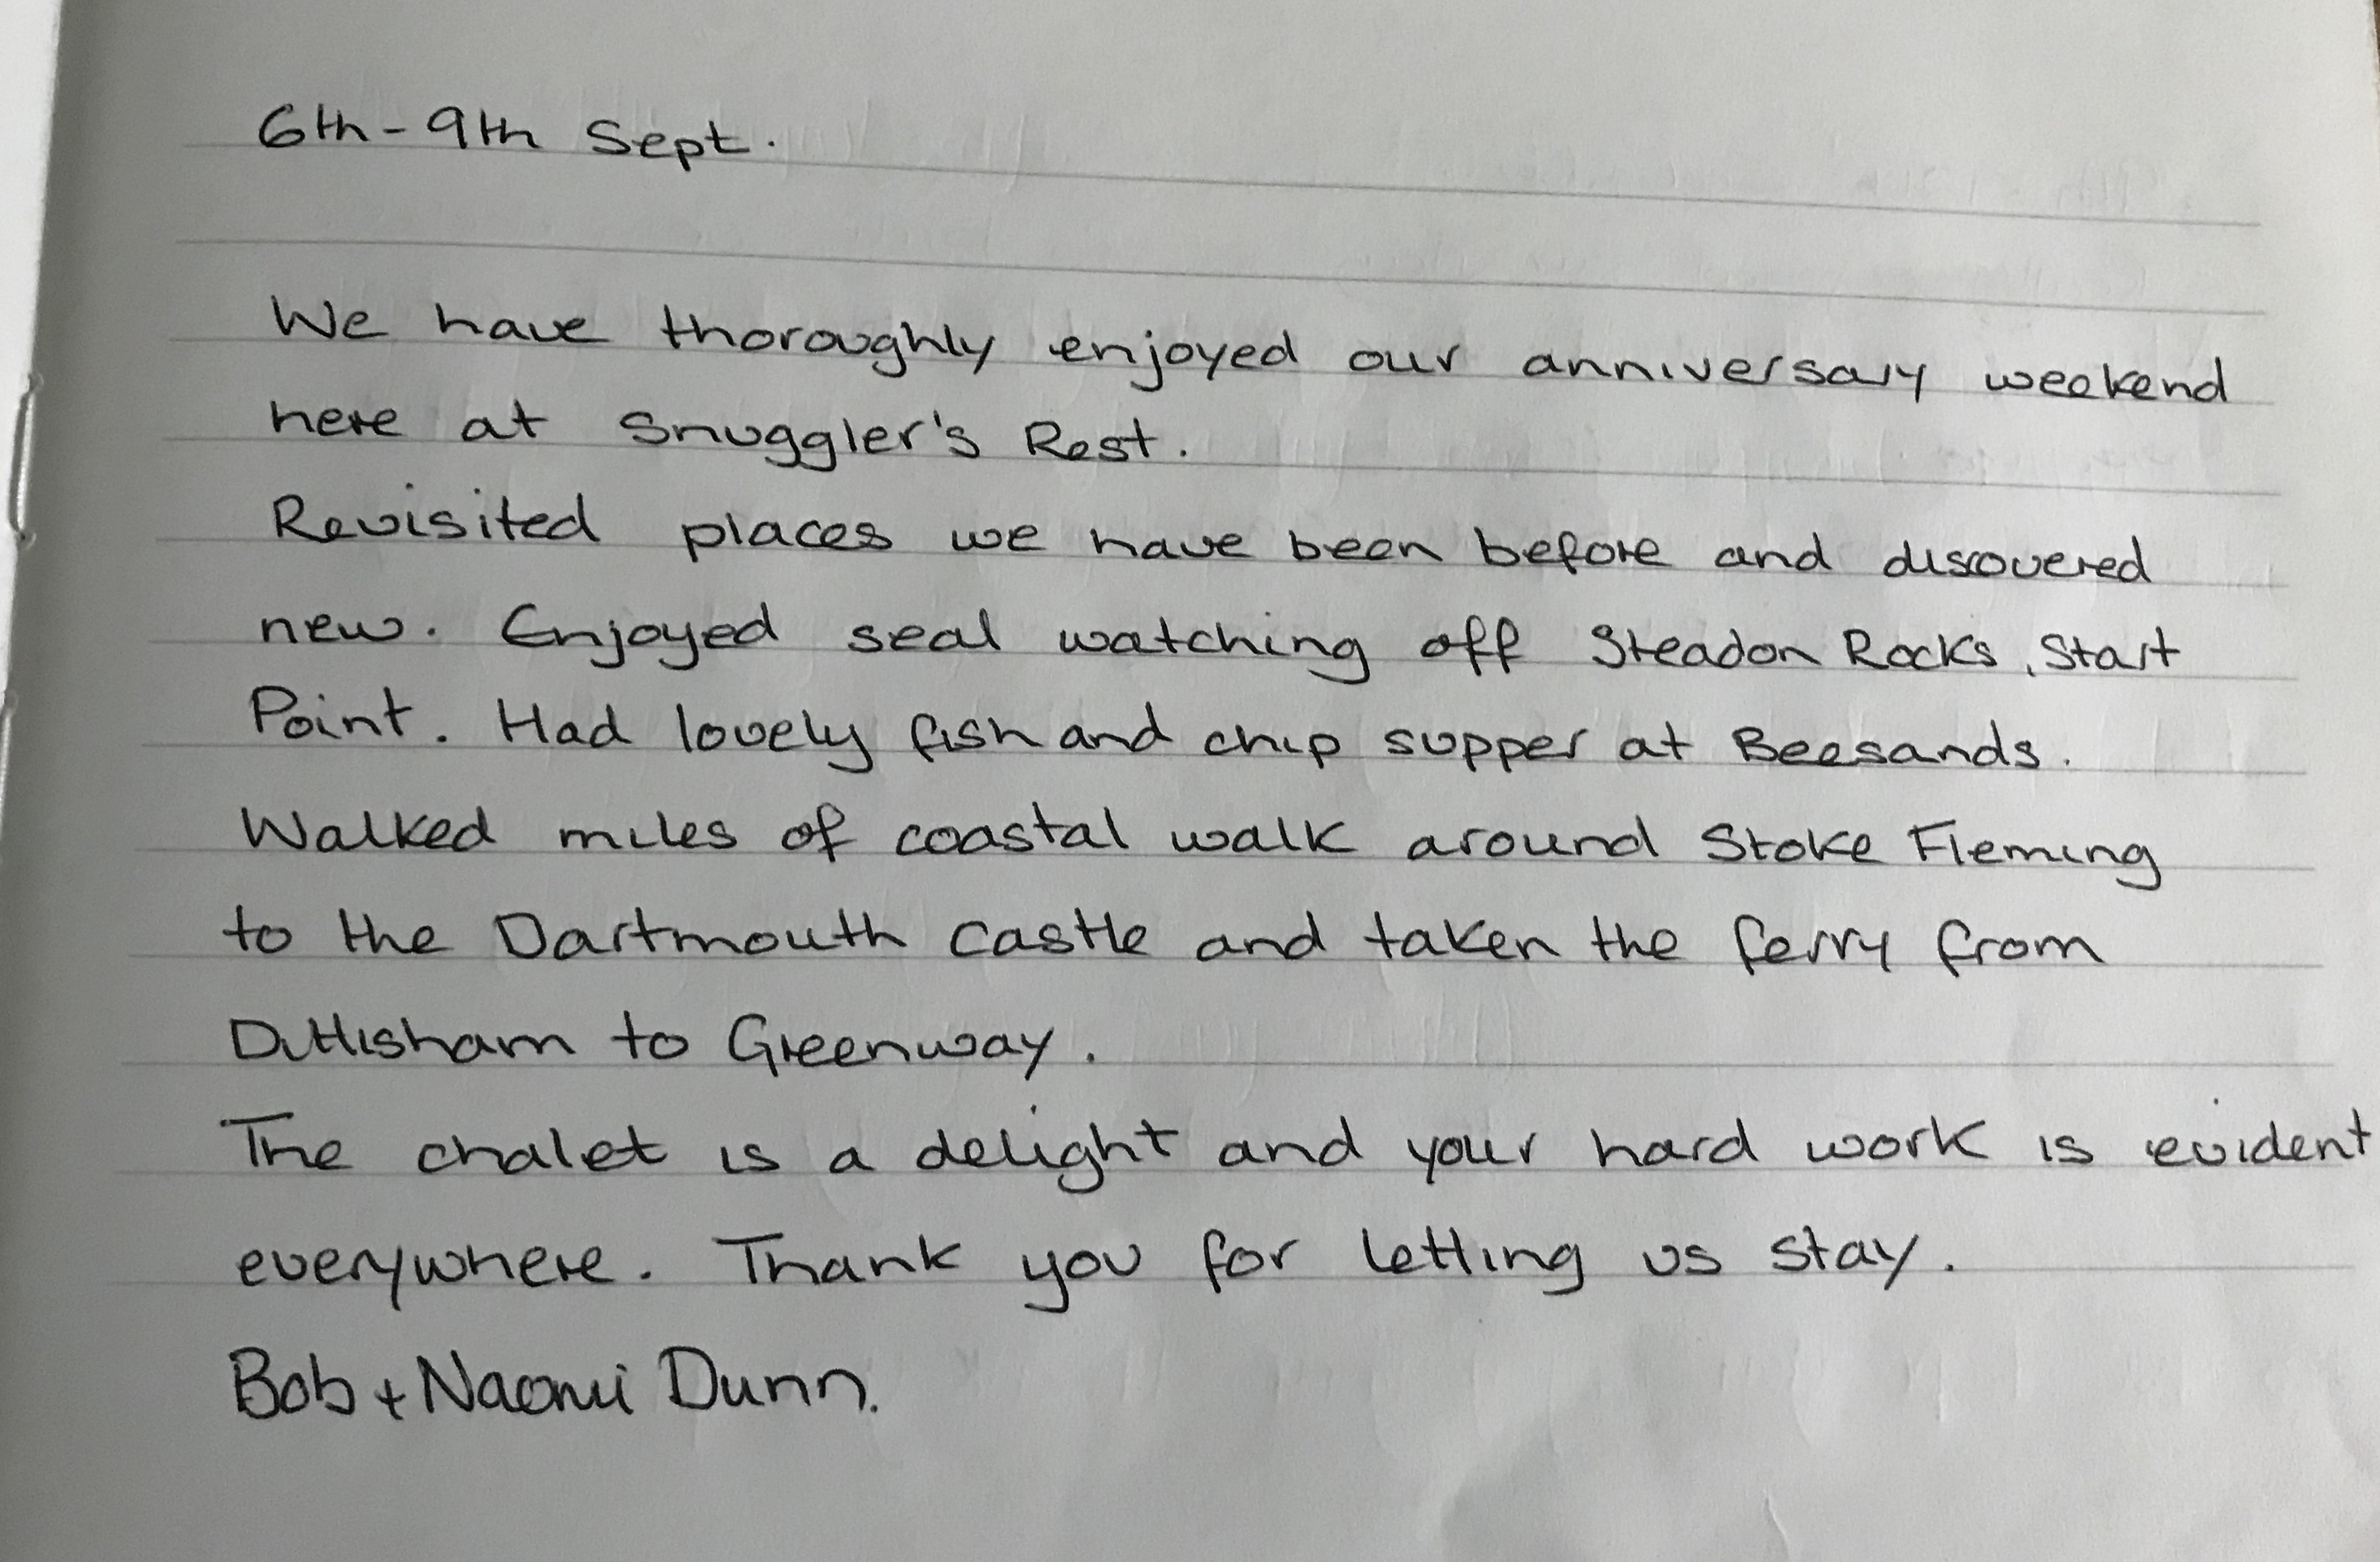 6th - 9th Sept.
We have thoroughly enjoyed our anniversary weekend
here at Snuggler's Rest.
Revisited places we have been before and discovered
new. Enjoyed seal watching off Steadon Rocks, Start
Point. Had lovely fish and chip supper at Beesands.
Walked miles of coastal walk around Stoke Fleming
to the Dartmouth Castle and taken the ferry from
Dittisham to Greenway.
The chalet is a delight and your hard work is evident
everywhere. Thank you for letting us stay.
Bob + Naomi Dunn.